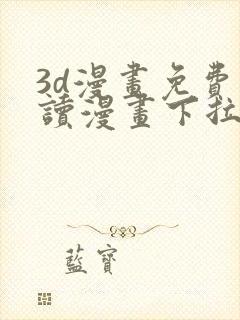 3d漫畫免費
讀漫畫下拉
藍寶